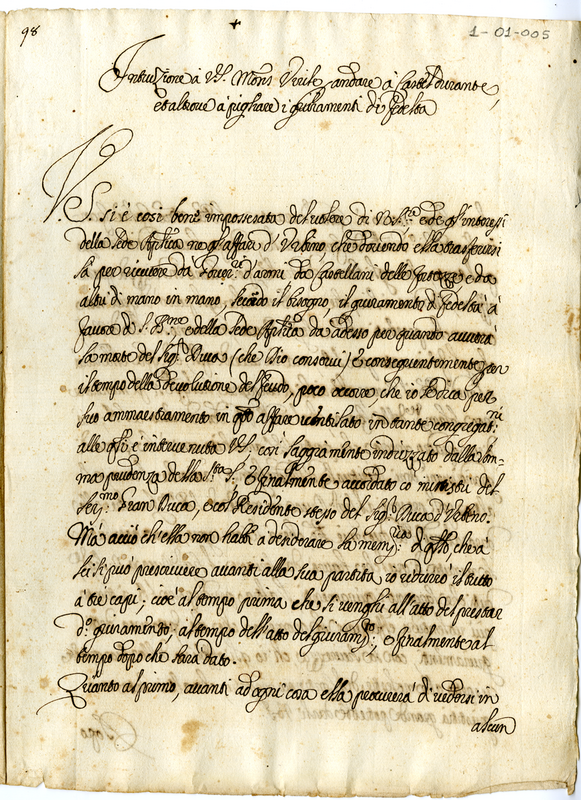 98
+
1-01-005
Instruzione à V.S. Mons. Verile andare à Casteldurante,
et altrove à pigliare i giuramenti di fedeltà
V.S. si è così bene impossessata del volere di N. S.re e de gl'interessi
della Sede Apltica ne gl'affari d'Urbino che dovendo ella trasferirsi
là per ricevere da' Gover.ri d'armi da Castellani delle fortezze e da
altri di mano in mano, secondo il bisogno, il giuramento di fedeltà à
favore di S. B.ne e della Sede Aplica da adesso per quando avverrà
la morte del Sig.r Duca (che Dio conservi) e conseguentemente per
il tempo della devolutione del feudo, poco occorre che io le dica per
suo ammaestramento in q.to affare ventilato in tante congregat.ni
alle q.li è intervenuta V.S. così saggiamente indrizzato dalla som-
ma prudenza della S.tà S. e finalmente accordato co' ministri del
Ser.mo Gran Duca, e col Residente stesso del Sig.r Duca d'Urbino.
Mà acciò ch'ella non habbi a desiderare la mem.ria di q.llo che à
lei si può prescrivere avanti alla sua partita, io ridurrò il tutto
à tre capi; cioè al tempo prima che si venghi all'atto del prestar
d.o giuramento, al tempo dell'atto del giuram.to, e finalmente al
tempo dopo che sarà dato.
Quanto al primo, avanti ad ogni cosa ella procurerà di vedersi in
alcun